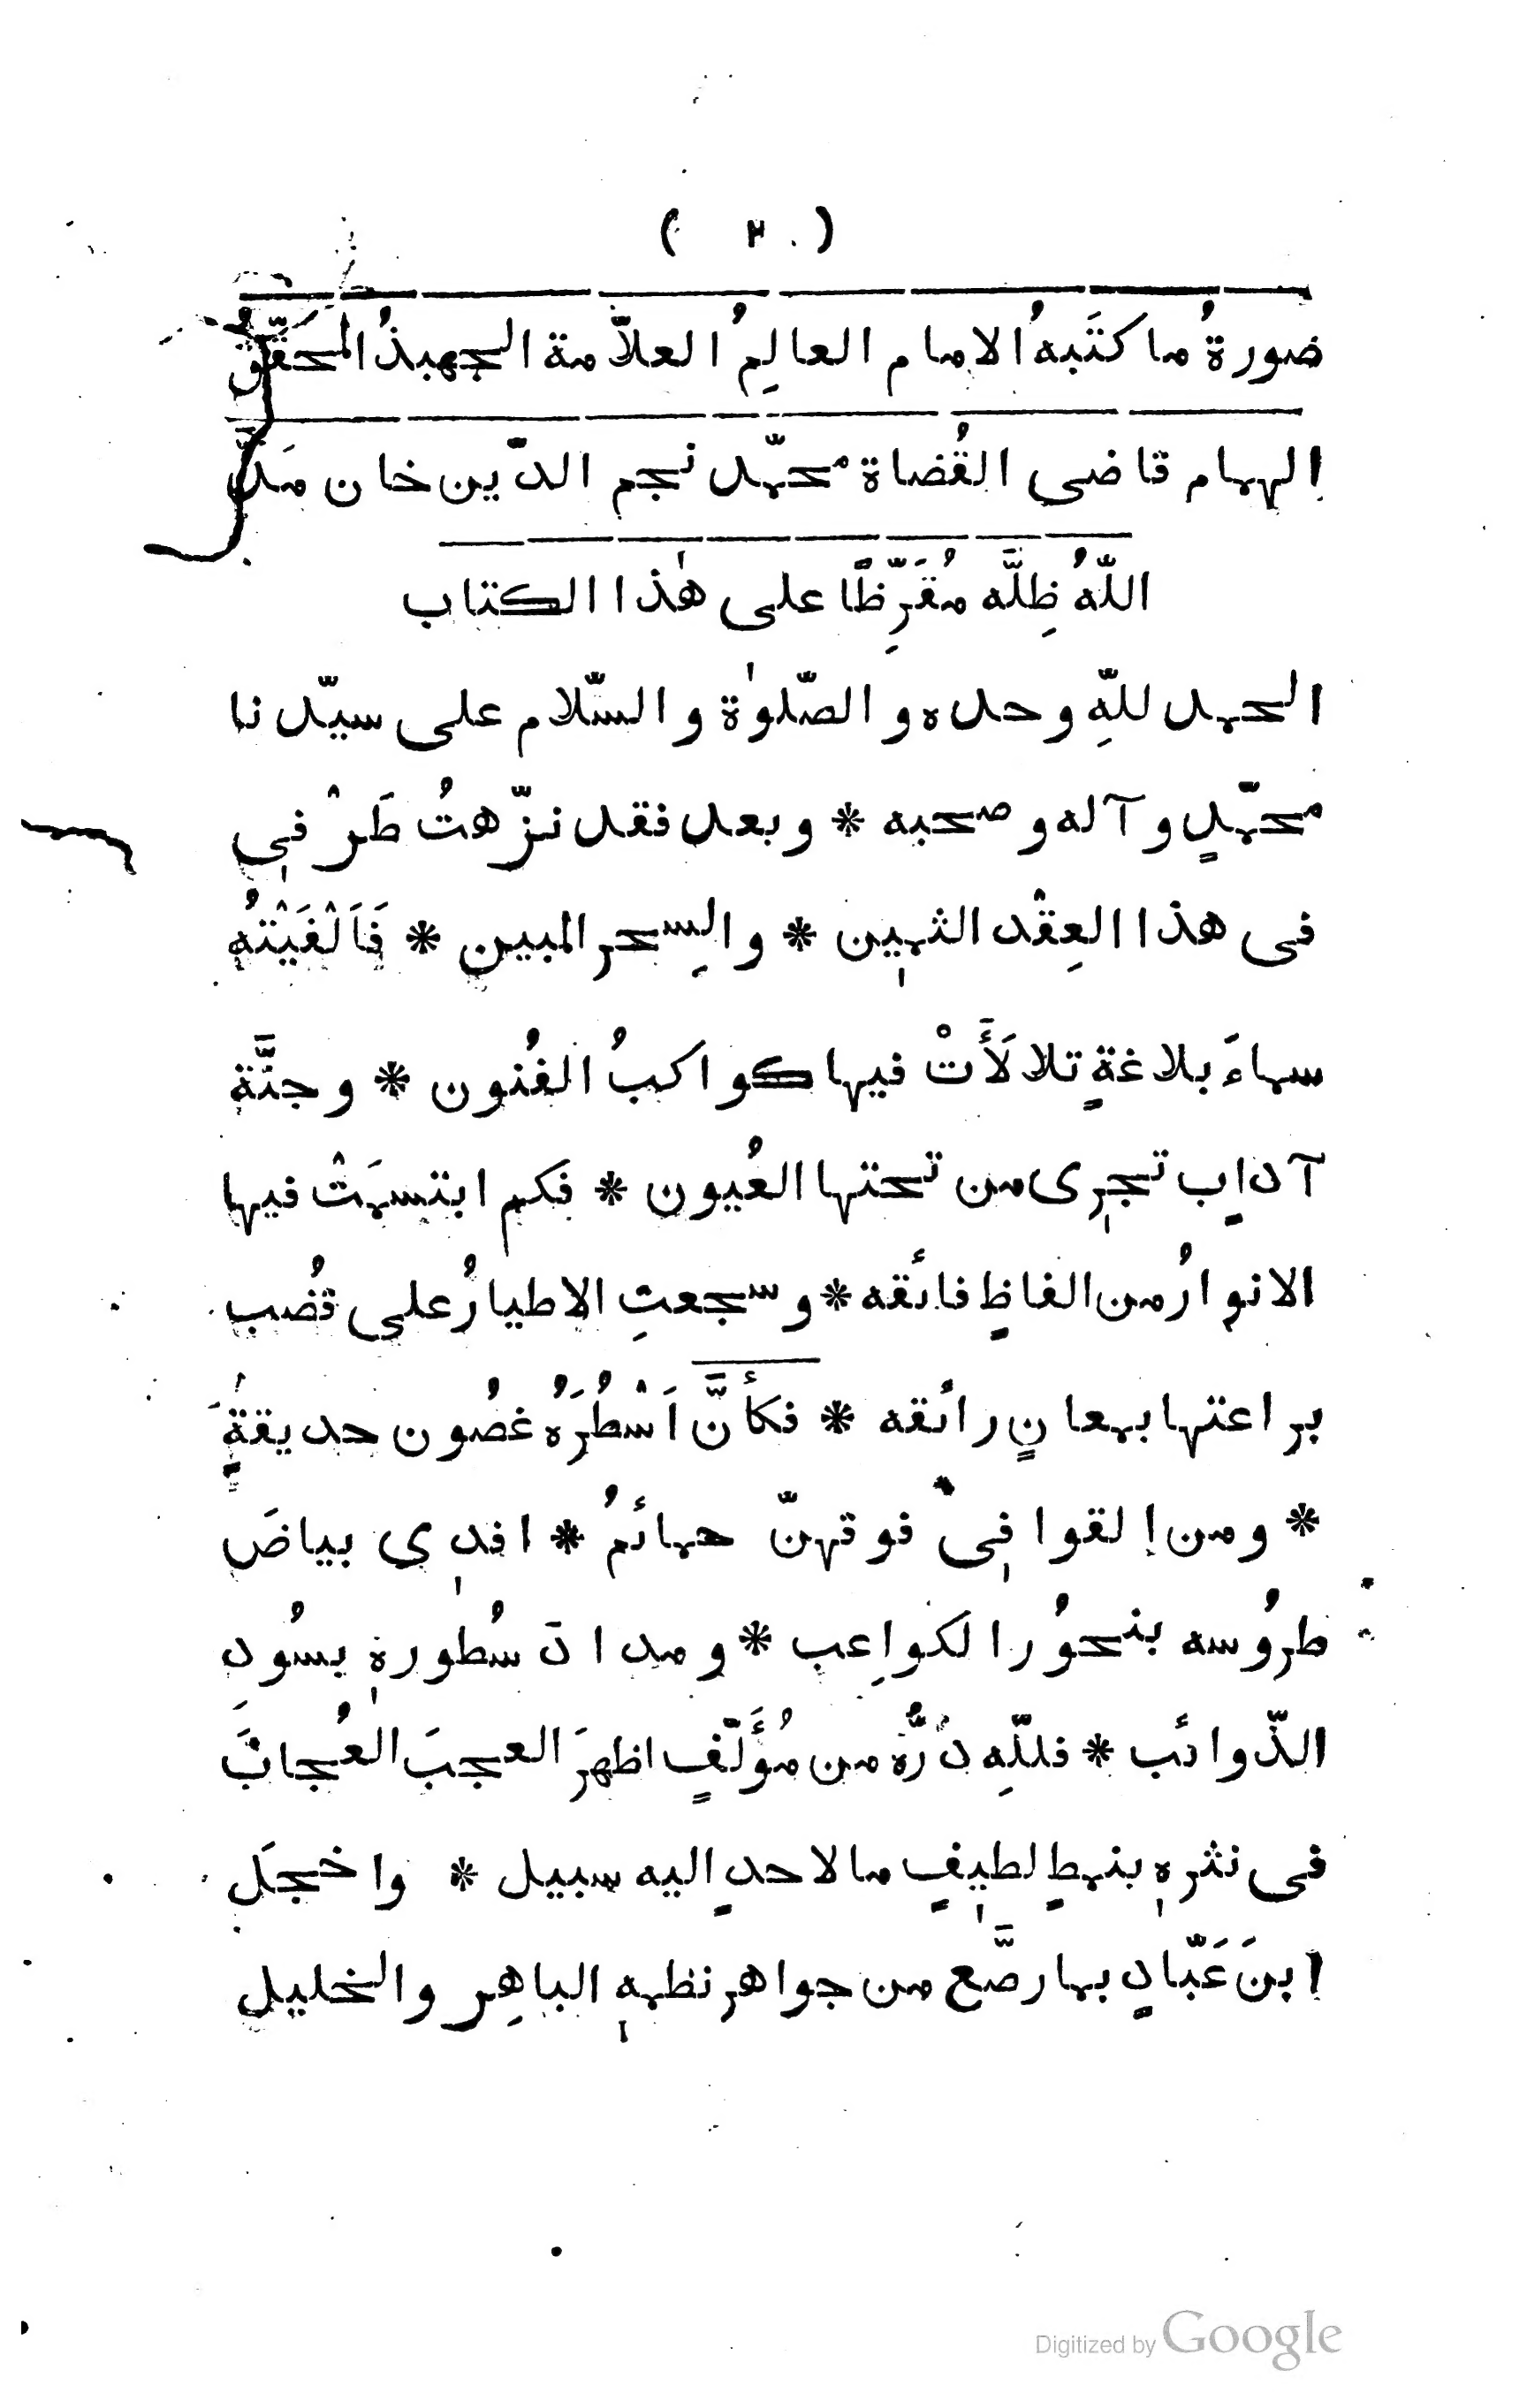 ( ٢٠ )
صورةُ ما كتَبهُ الامام العالِمُ العلّامة الجهبذُ المحَقّقُ
الهمام قاضى القُضاة محمّد نجم الدّين خان مَدَّ
اللّهُ ظِلَّه مُقَرِّظًا على هٰذا الكتاب
الحمد للّهِ وحده و الصّلوٰة و السّلام على سيّدنا
محمّدٍ و آله و صحبه * و بعد فقد نزّهتُ طَرْفى
فى هذا العِقْد الثمين * و السِحر المبين * فَاَلْفَيْتُه
سماءَ بلاغةٍ تلالَأَتْ فيها كواكبُ الفُنون * و جنَّة
آدابٍ تجرى من تحتها العُيون * فكم ابتسمَتْ فيها
الانوارُ من الفاظٍ فائقه * و سجعتِ الاطيارُ على قُضب
براعتها بمعانٍ رائقه * فكأنَّ اَسْطُرَهُ غصُون حديقةٍ
* ومن القوافى فوقهنّ حمائمُ * افدى بياضَ
طرُوسه بنحوُر الكواعِب * و مدادَ سُطوره بسُودِ
الذّوائب * فللّهِ دَرُّه من مُؤَلّفٍ اظهرَ العجبَ العُجابَ
فى نثره بنمطٍ لطيفٍ ما لاحدٍ اليه سبيل * واخجلَ
ابنَ عَبّادٍ بما رصَّع من جواهر نظمه الباهِر والخليل
Digitized by Google